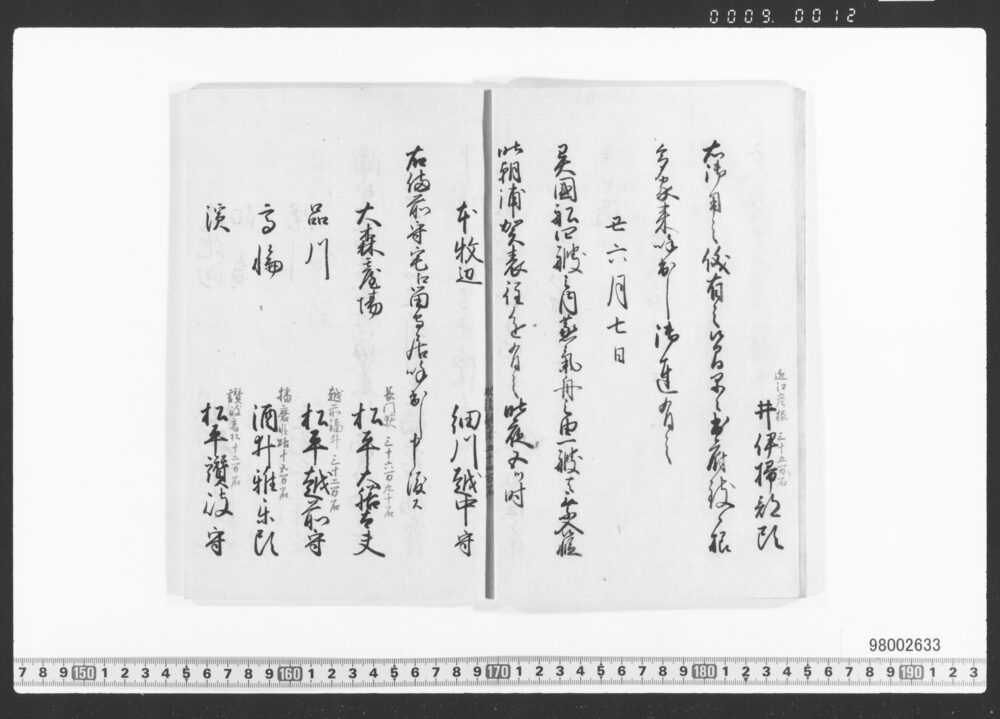 0009.0012
近江彦根 三十五万石
井伊掃部頭
右御用之儀有之
家来呼出し御達有之
廿六月七日
異国船四艘之内蒸気舟之由一艘
此朝浦賀表 有之 此夜 時
本牧辺
細川越中守
右備前守宅 留守居呼出し申渡ス
大森 場
長門萩 三十六万九千石
松平大膳大夫
品川
越前福井 三十二万石
松平越前守
高輪
播磨姫路 十五万石
酒井雅楽頭
濱
讃岐高松十二万石
松平讃岐守
98002633
7 8 9 150 1 2 3 4 5 6 7 8 9 160 1 2 3 4 5 6 7 8 9 170 1 2 3 4 5 6 7 8 9 180 1 2 3 4 5 6 7 8 9 190 1 2 3